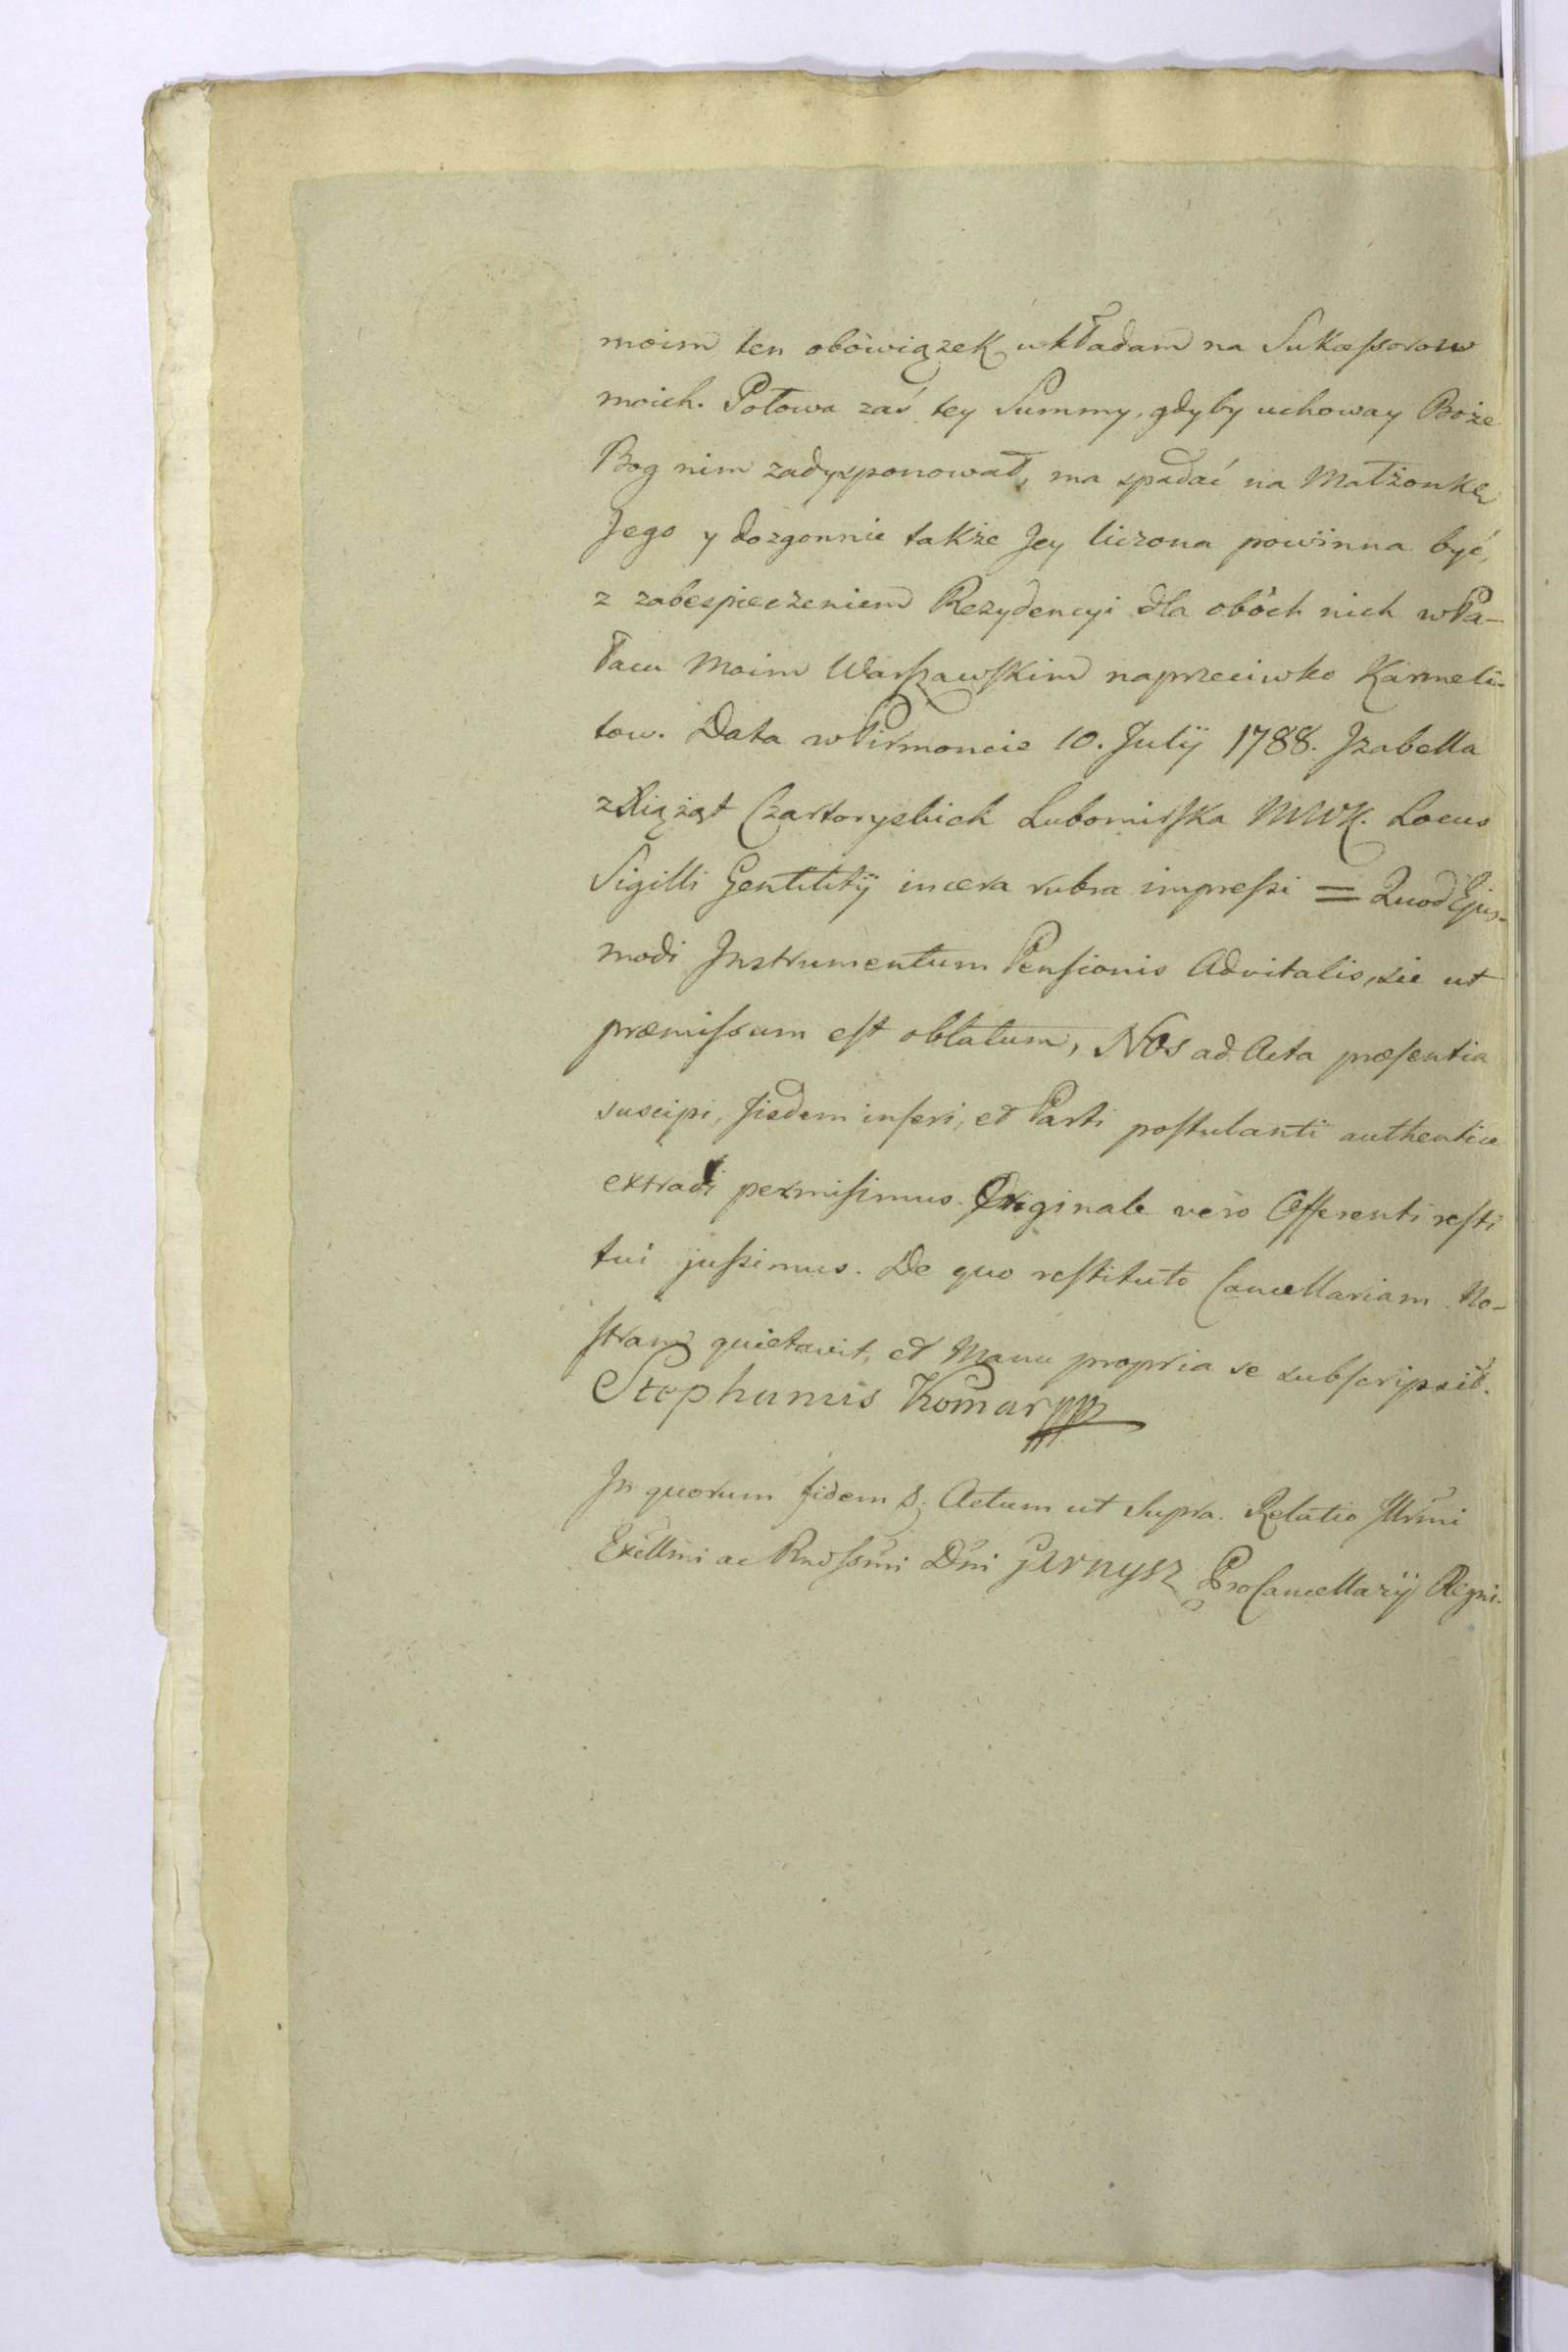 moim ten obowiązek wkładam na Sukcessorow
moich. Połowa zaś tey Summy, gdyby uchoway Boże
Bog nim zadysponował, ma spadać na Małżonkę
Jego y dozgonnie także Jey liczona powinna być,
z zabespieczeniem Rezydencyi dla oboch nich w Pa-
łacu Moim Warszawskim naprzeciwko Karmeli-
tow. Data w Pirmoncie 10. Julij 1788. Jzabella
z Xiążąt Czartoryskich Lubomirska MWK. Locus
Sigilli Gentilitij in cera rubra impressi = Quod Ejus-
modi Instrumentum Pensionis Advitalis, sic ut
præmissum est oblatum, Nos ad Acta præsentia
suscipi, Jisdem inseri, et Parti postulanti authentice
extradi permisimus. Originale vero Offerenti resti
tui jussimus. De quo restituto Cancellariam No-
stram quietavit, et Manu propria se subscripsit.
Stephanus Komar mpp
In quorum fidem &. Actum ut Supra. Relatio Jllrmi
Excllmi ac Rndssmi Dni Garnysz ProCancellarij Regni.